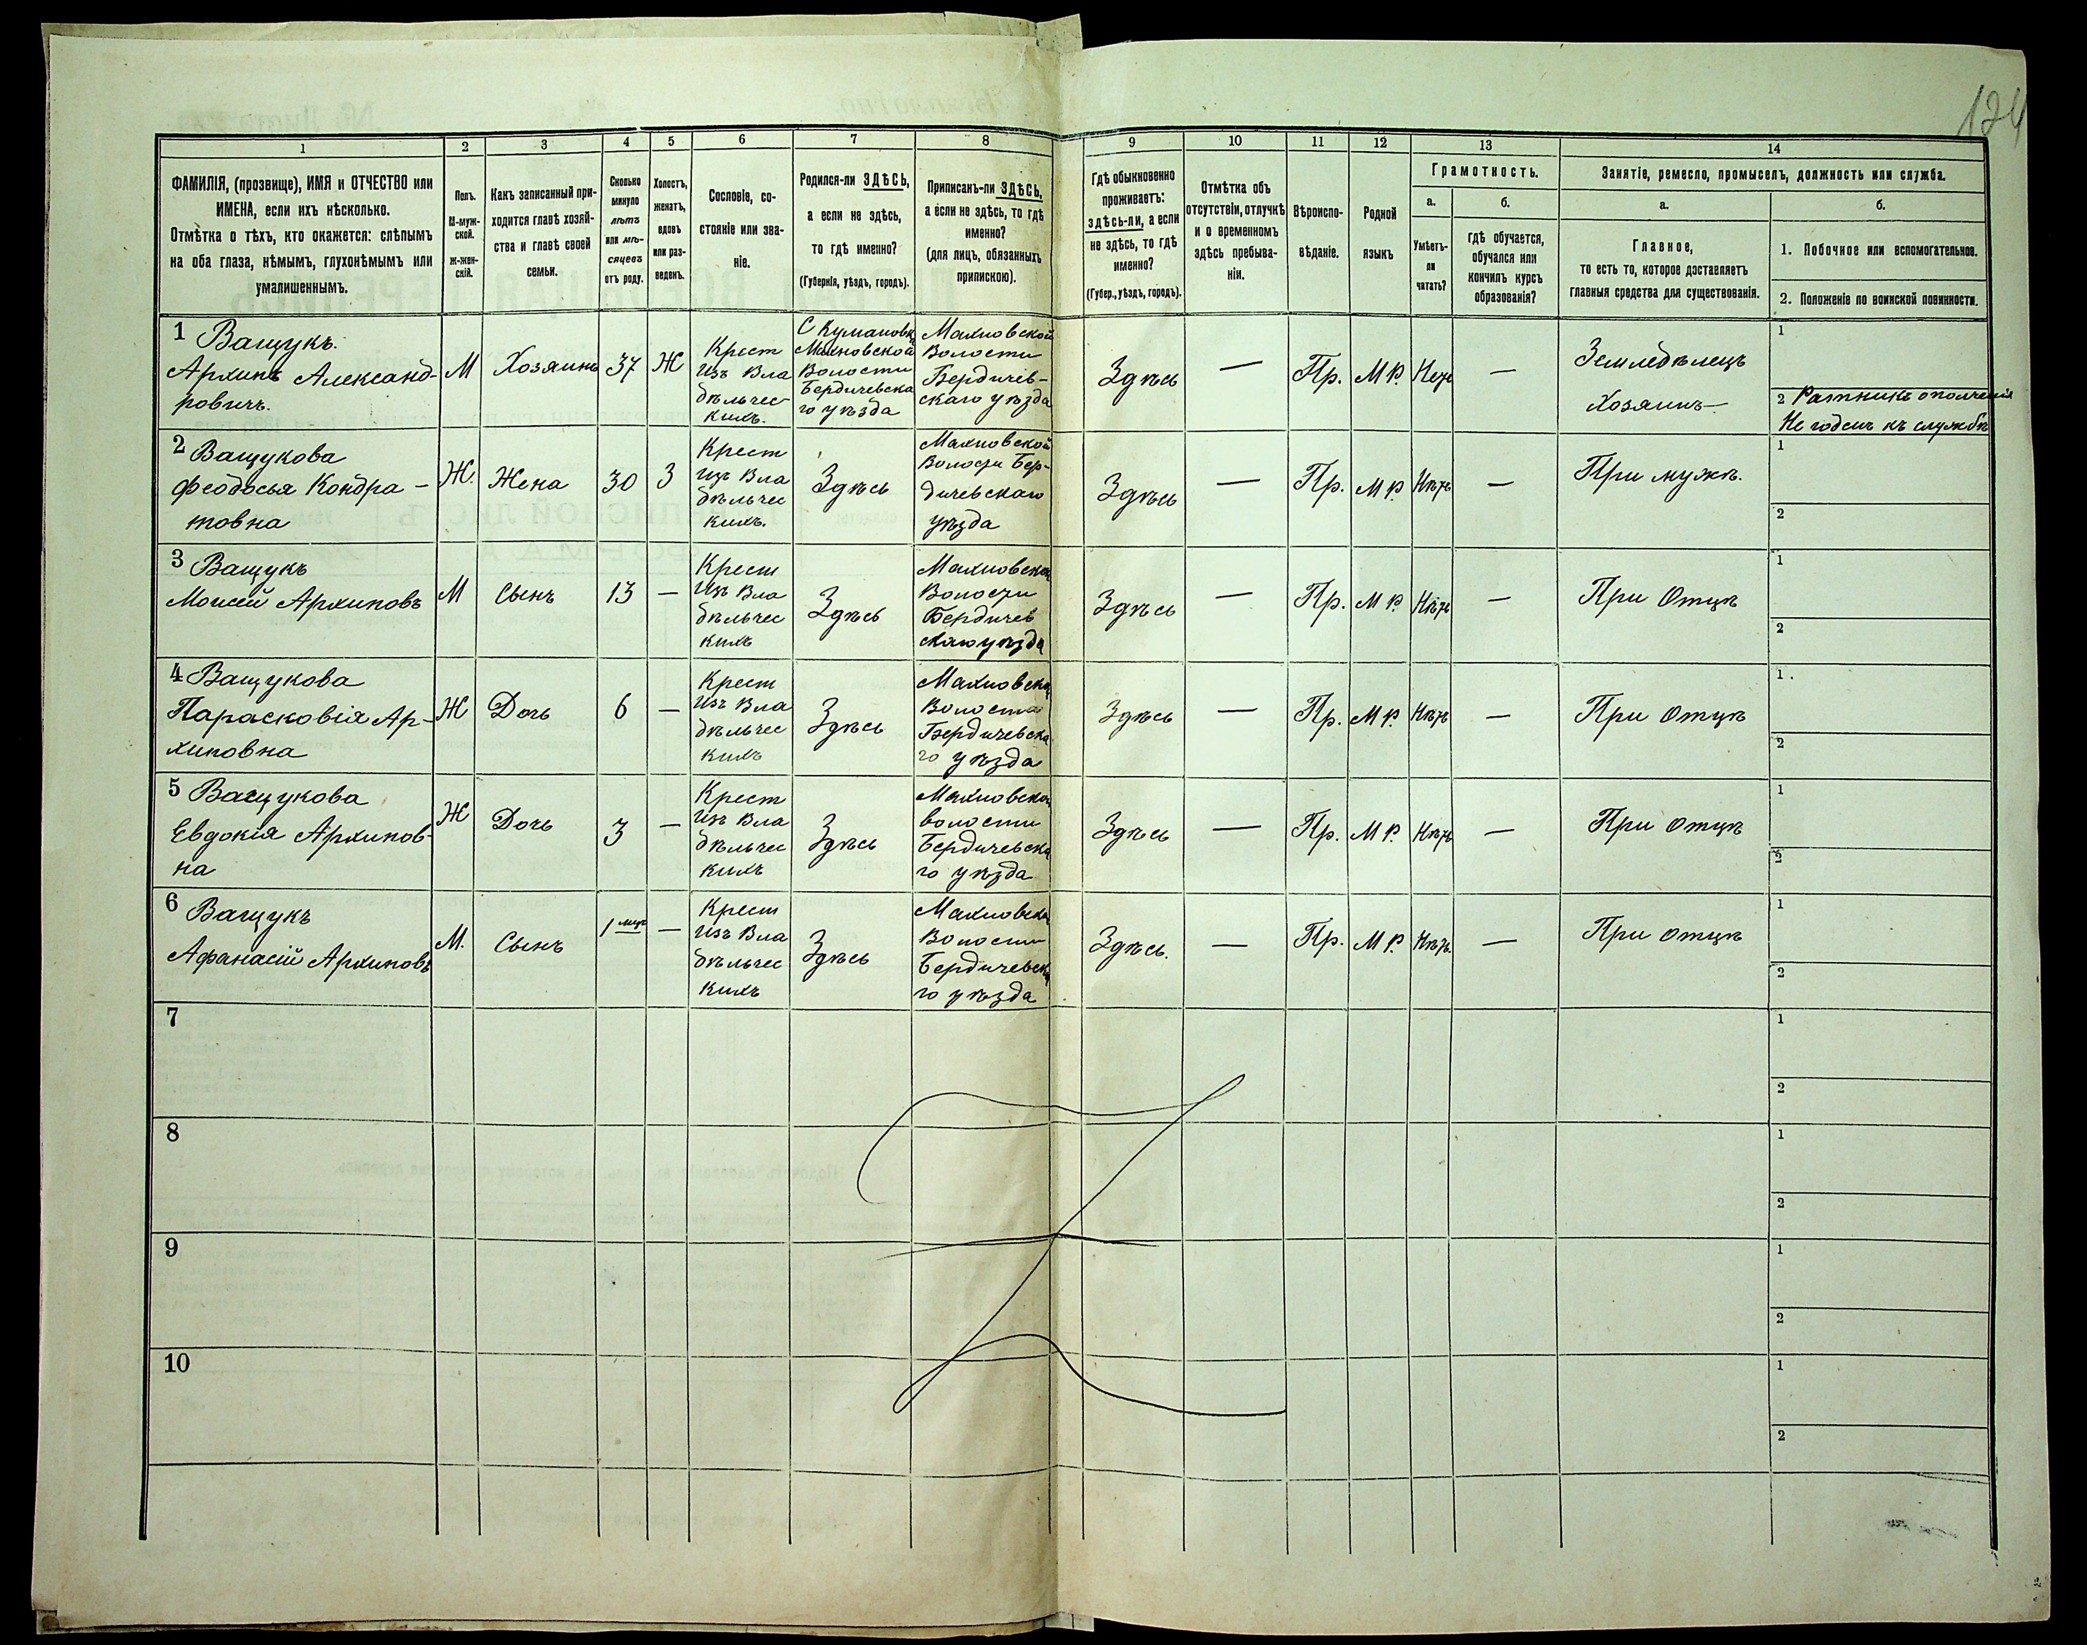 124
1
2
3
4
5
6
7
8
9
10
11
12
13
14
ФАМИЛІЯ, (прозвище), ИМЯ и ОТЧЕСТВО или
ИМЕНА, если ихъ нѣсколько.
Отмѣтка о тѣхъ, кто окажется: слѣпымъ
на оба глаза, нѣмымъ, глухонѣмымъ или
умалишеннымъ.
Полъ.
М-муж-
ской.
ж-жен-
скій.
Какъ записанный при-
ходится главѣ хозяй-
ства и главѣ своей
семьи.
Сколько
минуло
лѣтъ
или мѣ-
сяцевъ
отъ роду.
Холостъ,
женатъ,
вдовъ
или раз-
веденъ.
Сословіе, со-
стояніе или зва-
ніе.
Родился-ли ЗДѢСЬ,
а если не здѣсь,
то гдѣ именно?
(Губернія, уѣздъ, городъ).
Приписанъ-ли ЗДѢСЬ,
а если не здѣсь, то гдѣ
именно?
(для лицъ, обязанныхъ
припискою).
Гдѣ обыкновенно
проживаетъ:
здѣсь-ли, а если
не здѣсь, то гдѣ
именно?
(Губер., уѣздъ, городъ).
Отмѣтка объ
отсутствіи, отлучкѣ
и о временномъ
здѣсь пребыва-
ніи.
Вѣроиспо-
вѣданіе.
Родной
языкъ
Грамотность.
а.
Умѣетъ-
ли
читать?
б.
гдѣ обучается,
обучался или
кончилъ курсъ
образованія?
Занятіе, ремесло, промыселъ, должность или служба.
а.
Главное,
то есть то, которое доставляетъ
главныя средства для существованія.
б.
1. Побочное или вспомогательное.
2. Положеніе по воинской повинности.
1 Ващукъ.
Архипъ Александ-
ровичъ.
М
Хозяинъ
37
Ж
Крест
Изъ Вла
дѣльчес
кихъ.
С Кумановк
Махновской
Волости
Бердичевска
го уѣзда
Махновской
Волости
Бердичев-
скаго уѣзда
Здѣсь
—
Пр.
М Р.
Нетъ
—
Земледѣлецъ
Хозяинъ
1
2 Ратникъ ополченія
Не годенъ къ службѣ
2 Ващукова
Феодосья Кондра-
товна
Ж.
Жена
30
З
Крест
Изъ Вла
дѣльчес
кихъ.
Здѣсь
Махновской
Волости Бер-
дичевскаго
уѣзда
Здѣсь
—
Пр.
М Р.
Нѣтъ
—
При мужѣ.
1
2
3 Ващукъ
Моисей Архиповъ
М
Сынъ
13
—
Крест
Изъ Вла
дѣльчес
кихъ
Здѣсь
Махновской
Волости
Бердичев
скаго уѣзда
Здѣсь
—
Пр.
М Р.
Нѣтъ
—
При Отцѣ
1
2
4 Ващукова
Парасковія Ар-
хиповна
Ж
Дочь
6
—
Крест
Изъ Вла
дѣльчес
кихъ
Здѣсь
Махновской
Волости
Бердичевска
го уѣзда
Здѣсь
—
Пр.
М Р.
Нѣтъ
—
При Отцѣ
1
2
5 Ващукова
Евдокія Архипов-
на
Ж
Дочь
3
—
Крест
Изъ Вла
дѣльчес
кихъ
Здѣсь
Махновской
волости
Бердичевска
го уѣзда
Здѣсь
—
Пр.
М Р.
Нѣтъ
—
При Отцѣ
1
2
6 Ващукъ
Афанасій Архиповъ
М.
Сынъ
1 мцъ
—
Крест
Изъ Вла
дѣльчес
кихъ
Здѣсь
Махновской
Волости
Бердичевска
го уѣзда
Здѣсь.
—
Пр.
М Р.
Нѣтъ.
—
При отцѣ
1
2
7
1
2
8
1
2
9
1
2
10
1
2